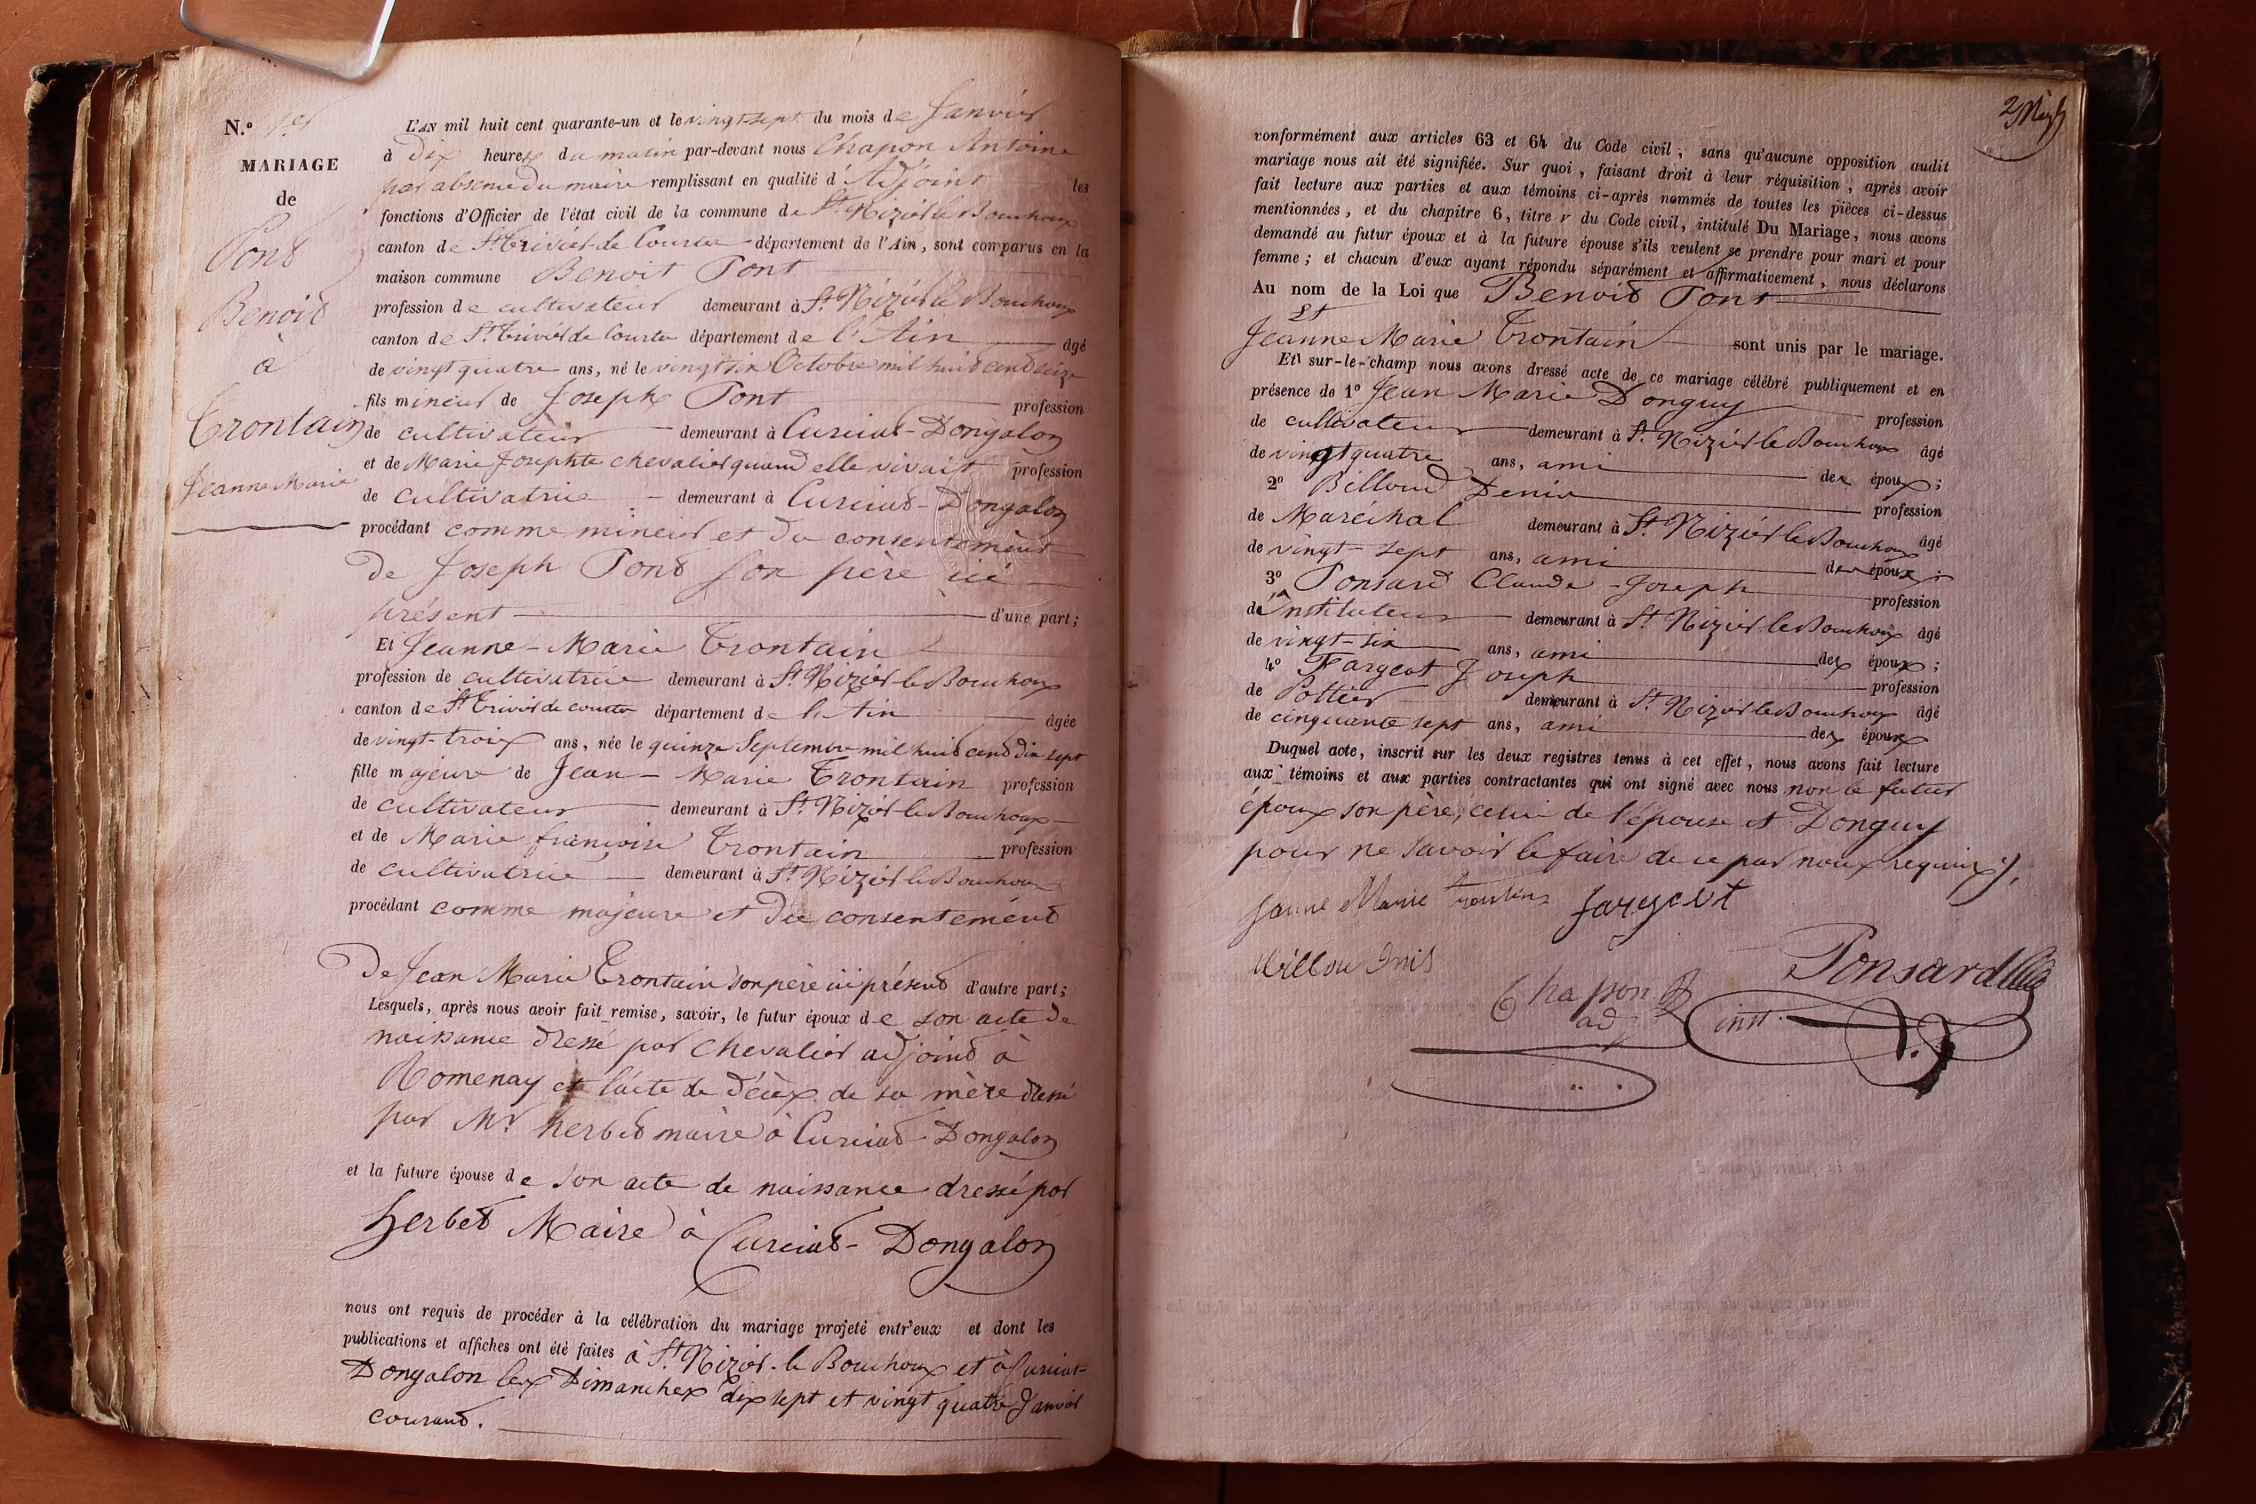 N.º 1er
MARIAGE
de
Pont
Benoit
à
Trontain
Jeanne Marie
L'AN mil huit cent quarante-un et le vingt-sept du mois de Janvier
à Dix heures du matin par-devant nous Chapon Antoine
par absence du maire remplissant en qualité d'Adjoint les
fonctions d'Officier de l'état civil de la commune de St. Nizier le Bouchoux
canton de St. Trivier de Courtes département de l'AIN, sont comparus en la
maison commune Benoit Pont
profession de cultivateur demeurant à St. Nizier le Bouchoux
canton de St. Trivier de Courtes département de l'Ain âgé
de vingt quatre ans, né le vingt six Octobre mil huit cent seize
fils mineur de Joseph Pont profession
de cultivateur demeurant à Curciat-Dongalon
et de Marie Josephte chevalier quand elle vivait profession
de cultivatrice demeurant à Curciat-Dongalon
procédant comme mineur et du consentement
de Joseph Pont son père ici
présent d'une part;
Et Jeanne-Marie Trontain
profession de cultivatrice demeurant à St. Nizier le Bouchoux
canton de St. Trivier de courtes département de l'Ain âgée
de vingt-trois ans, née le quinze Septembre mil huit cent dix sept
fille majeure de Jean-Marie Trontain profession
de cultivateur demeurant à St. Nizier le Bouchoux
et de Marie françoise Trontain profession
de cultivatrice demeurant à St. Nizier le Bouchoux
procédant comme majeure et du consentement
De Jean Marie Trontain son père ici présent d'autre part;
Lesquels, après nous avoir fait remise, savoir, le futur époux de son acte de
naissance dressé par chevalier adjoint à
Romenay et l'acte de décès de sa mère dressé
par Mr. herbet maire à Curciat-Dongalon
et la future épouse de son acte de naissance dressé par
Herbet Maire à Curciat-Dongalon
nous ont requis de procéder à la célébration du mariage projeté entr'eux et dont les
publications et affiches ont été faites à St. Nizier-le Bouchoux et à Curciat-
Dongalon les Dimanches dix sept et vingt quatre Janvier
courant.
conformément aux articles 63 et 64 du Code civil; sans qu'aucune opposition audit
mariage nous ait été signifiée. Sur quoi, faisant droit à leur réquisition, après avoir
fait lecture aux parties et aux témoins ci-après nommés de toutes les pièces ci-dessus
mentionnées, et du chapitre 6, titre V du Code civil, intitulé Du Mariage, nous avons
demandé au futur époux et à la future épouse s'ils veulent se prendre pour mari et pour
femme; et chacun d'eux ayant répondu séparément et affirmativement, nous déclarons
Au nom de la Loi que Benoit Pont
Et
Jeanne Marie Trontain sont unis par le mariage.
Et sur-le-champ nous avons dressé acte de ce mariage célébré publiquement et en
présence de 1º Jean Marie Donguy profession
de cultivateur demeurant à St. Nizier le Bouchoux âgé
de vingt quatre ans, ami des époux;
2º Billoud Denis profession
de Maréchal demeurant à St. Nizier le Bouchoux âgé
de vingt-sept ans, ami des époux;
3º Ponsard Claude-Joseph profession
de Instituteur demeurant à St. Nizier le Bouchoux âgé
de vingt-six ans, ami des époux;
4º Fargeot Joseph profession
de Pottier demeurant à St. Nizier le Bouchoux âgé
de cinquante sept ans, ami des époux
Duquel acte, inscrit sur les deux registres tenus à cet effet, nous avons fait lecture
aux témoins et aux parties contractantes qui ont signé avec nous non le futur
époux son père, celui de l'épouse et Donguy
pour ne savoir le faire de ce par nous requis.
Janne Marie trontin fargeot
Ponsard
Chapon
adj inst.